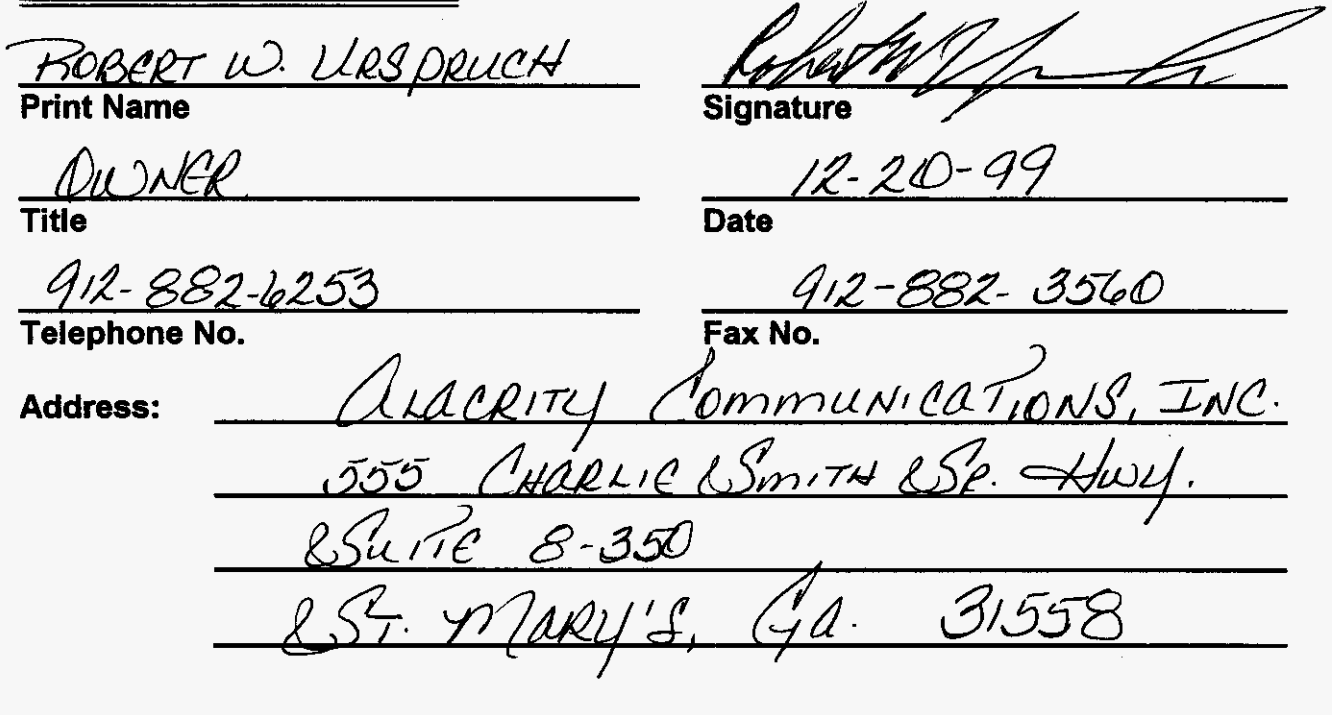 ROBERT W. URSPRUCH
Print Name
Signature
OWNER
12-20-99
Title
Date
912-882-6253
912-882-3560
Telephone No.
Fax No.
Address: ALACRITY COMMUNICATIONS, INC.
555 CHARLIE SMITH SR. HWY.
SUITE 8-350
ST. MARY'S, GA. 31558